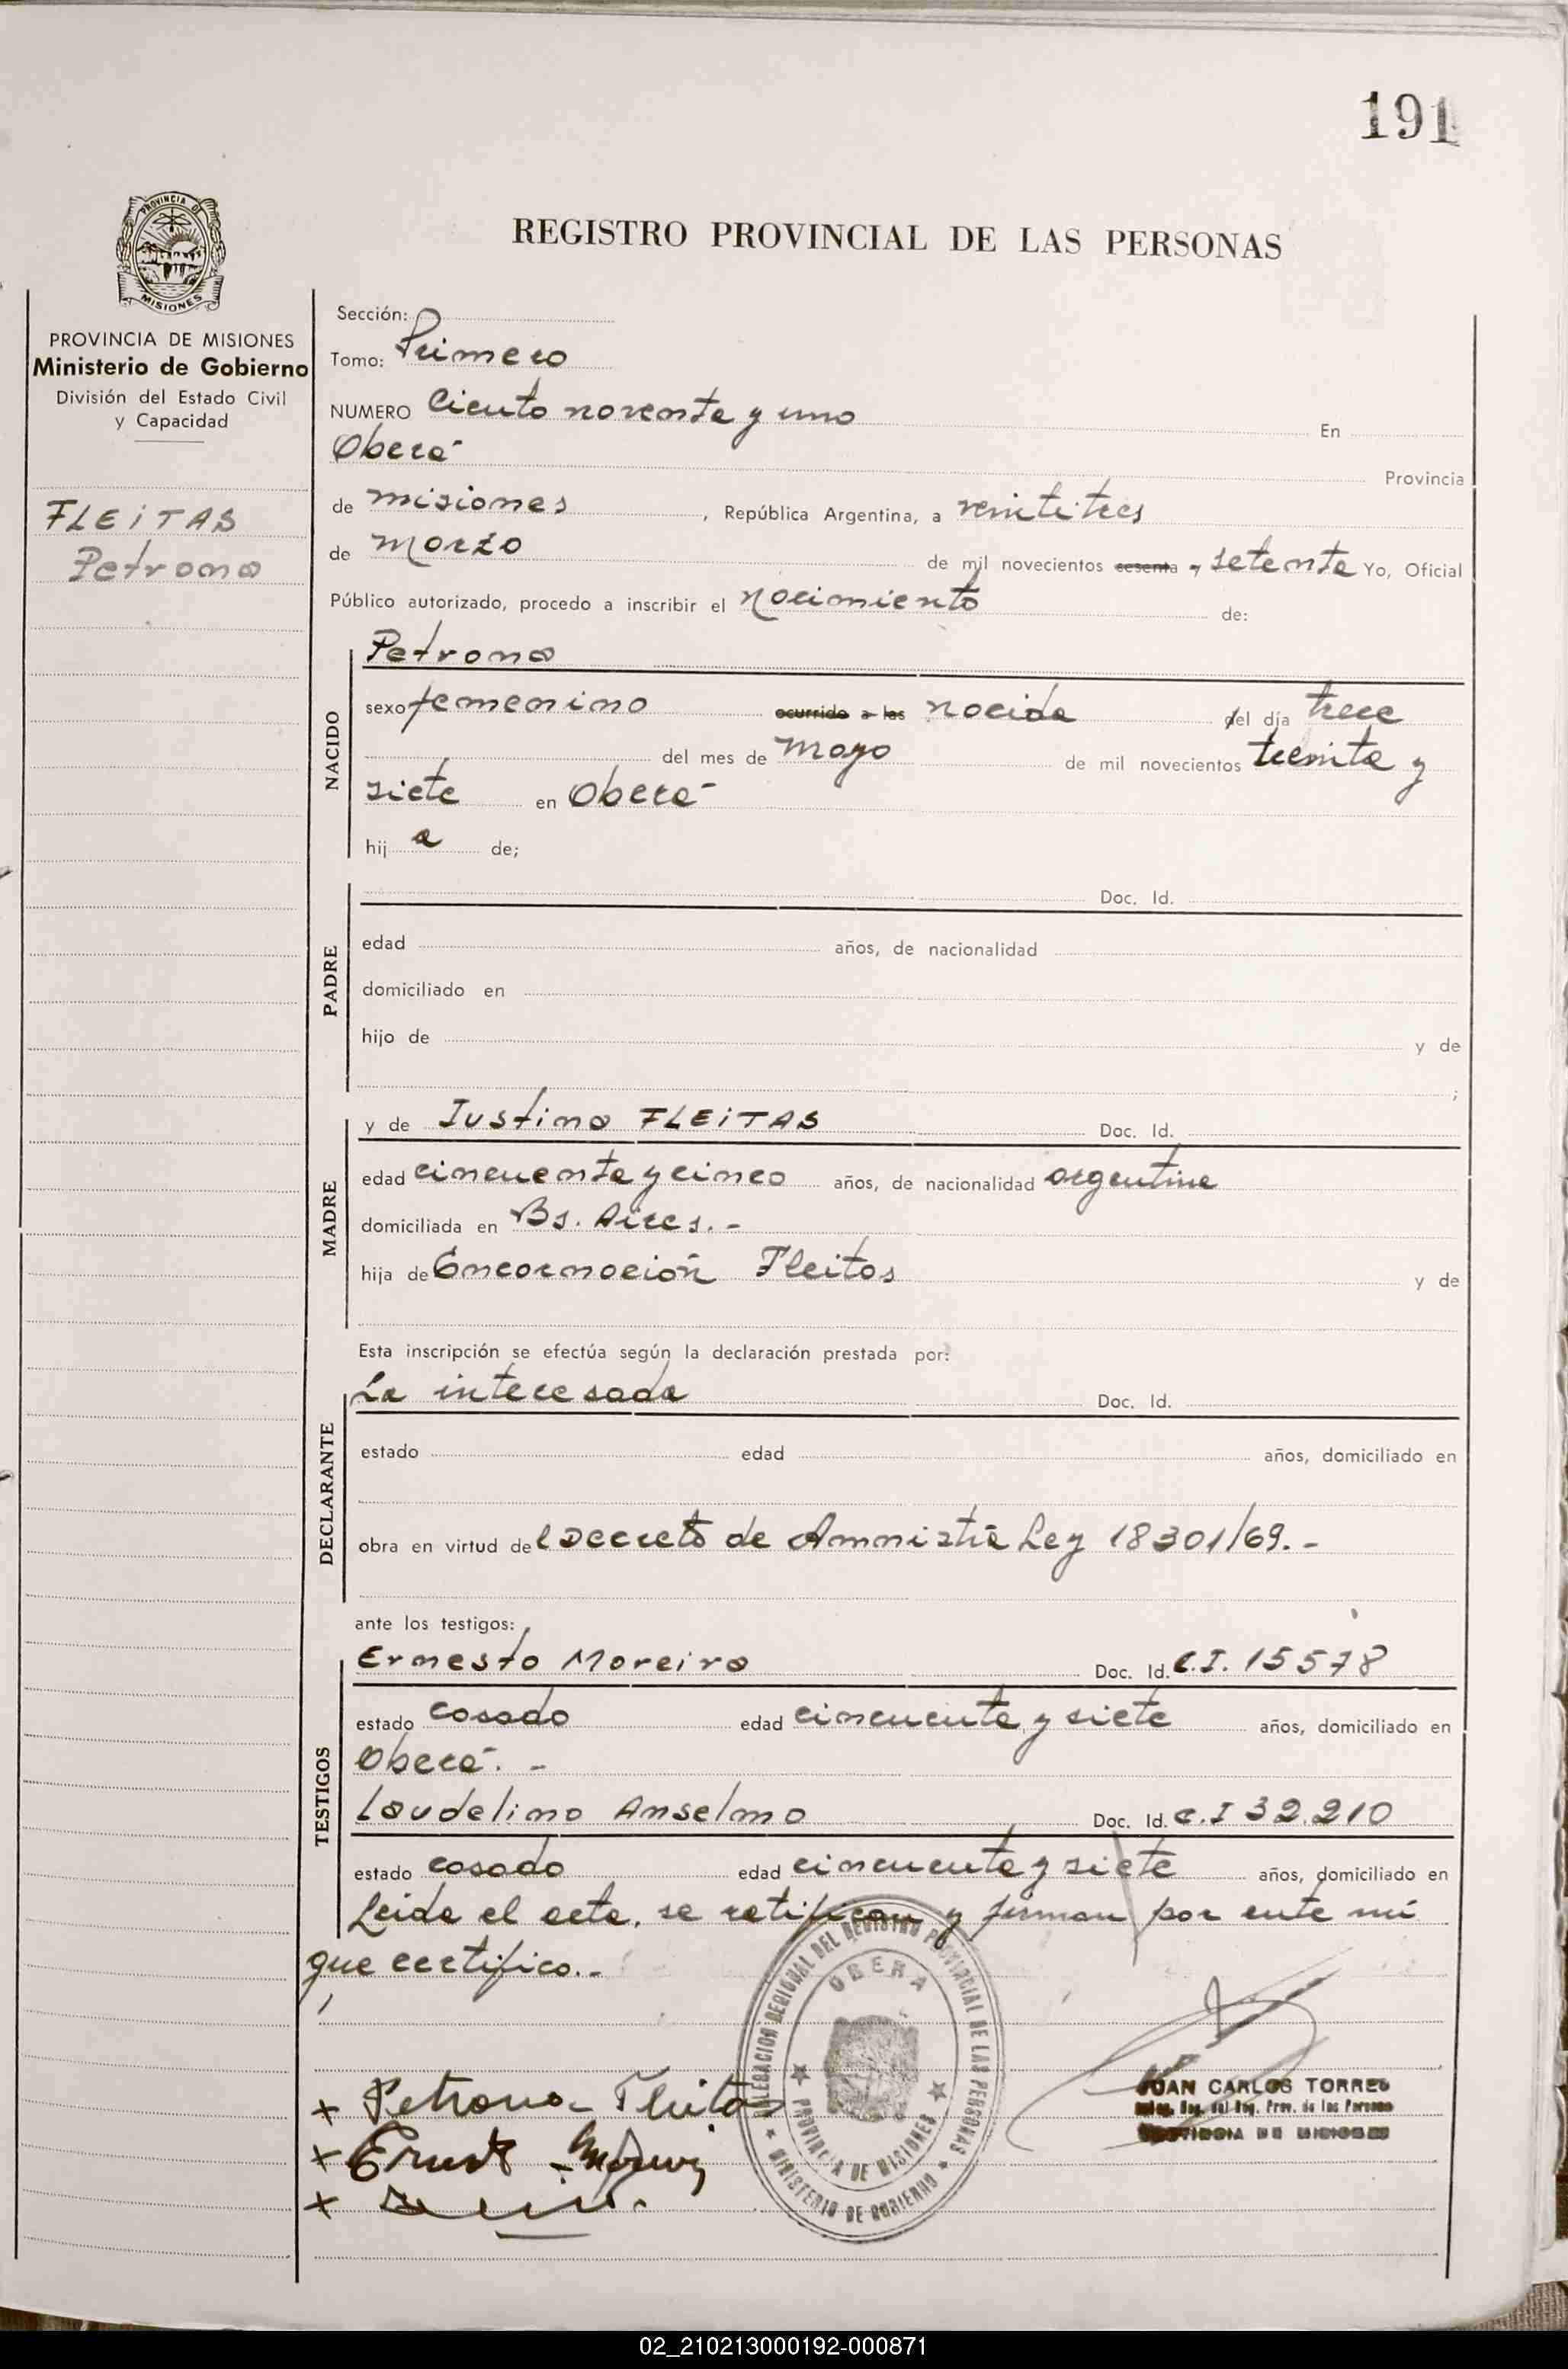 191
PROVINCIA DE
MISIONES
REGISTRO PROVINCIAL DE LAS PERSONAS
PROVINCIA DE MISIONES
Ministerio de Gobierno
División del Estado Civil
y Capacidad
FLEITAS
Petrona
Sección:
Tomo: Primero
NUMERO Ciento noventa y uno En
Oberá Provincia
de misiones, República Argentina, a veintitres
de Marzo de mil novecientos sesenta y setenta Yo, Oficial
Público autorizado, procedo a inscribir el nacimiento de:
NACIDO
Petrona
sexo femenino ocurrido a las nacida del día trece
del mes de mayo de mil novecientos treinta y
siete en Oberá
hij a de;
PADRE
Doc. Id.
edad años, de nacionalidad
domiciliado en
hijo de y de
;
MADRE
y de Justina FLEITAS Doc. Id.
edad cincuenta y cinco años, de nacionalidad argentina
domiciliada en Bs. Aires.-
hija de Encarnación Fleitas y de
Esta inscripción se efectúa según la declaración prestada por:
DECLARANTE
La interesada Doc. Id.
estado edad años, domiciliado en
obra en virtud del Decreto de Amnistía Ley 18301/69.-
ante los testigos:
TESTIGOS
Ernesto Moreira Doc. Id. C.I. 15578
estado casado edad cincuenta y siete años, domiciliado en
Oberá.-
Laudelino Anselmo Doc. Id. C.I 32.210
estado casado edad cincuenta y siete años, domiciliado en
Leida el acta, se ratifican y firman por ante mí
que certifico.-
DELEGACION REGIONAL DEL REGISTRO PROVINCIAL DE LAS PERSONAS
OBERA
PROVINCIA DE MISIONES
MINISTERIO DE GOBIERNO
JUAN CARLOS TORRES
Reg. del Reg. Prov. de las Personas
PROVINCIA DE MISIONES
+ Petrona Fleitas
+
+
02_210213000192-000871